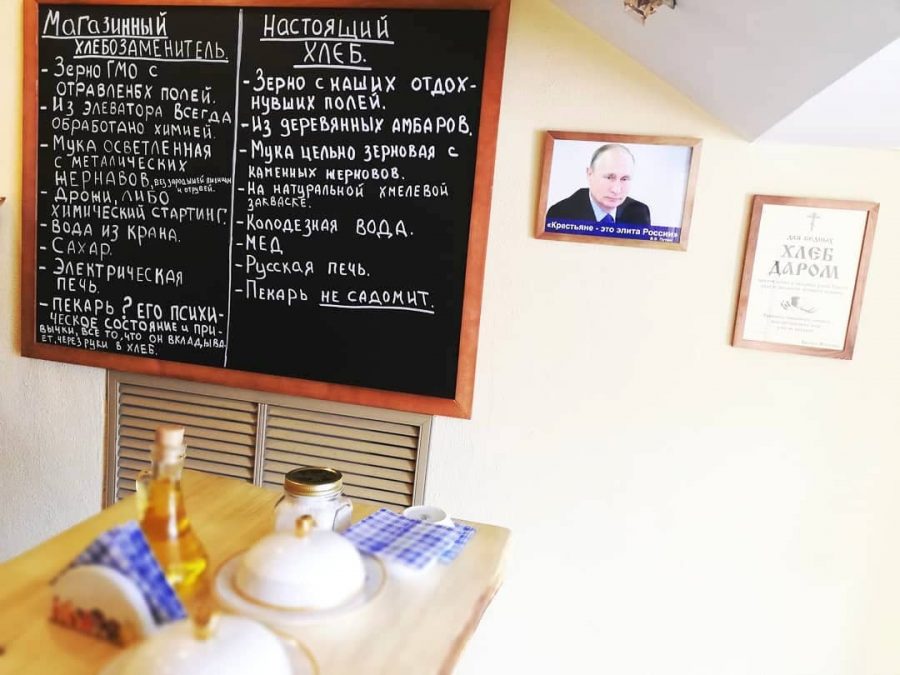 Магазинный
хлебозаменитель.
- Зерно ГМО с
отравленбх полей.
- Из элеватора всегда
обработано химией.
- Мука осветленная
с металических
жернавов, без зародышей пшеницы
и отрубей.
- Дрожи, либо
химический стартинг.
- Вода из крана.
- Сахар.
- Электрическая
печь.
- Пекарь? Его психи-
ческое состояние и при-
вычки, все то, что он вкладыва-
ет, через руки в хлеб.
Настоящий
хлеб.
- Зерно с наших отдох-
нувших полей.
- Из деревянных амбаров.
- Мука цельно зерновая с
каменных жерновов.
- На натуральной хмелевой
закваске.
- Колодезная вода.
- Мед
- Русская печь.
- Пекарь не садомит.
«Крестьяне - это элита России»
В.В. Путин
для бедных
ХЛЕБ
ДАРОМ